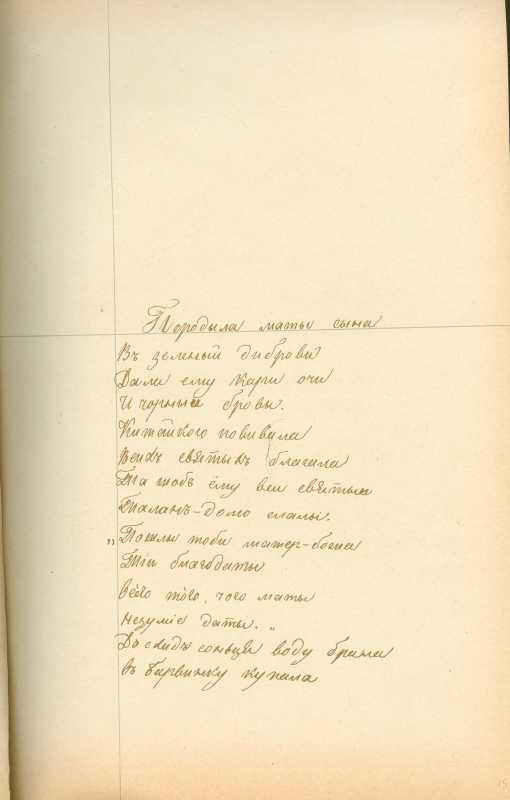 Породыла маты сына
Въ зеленый диброви
Дали ему кари очи
И чорныи бровы.
Китайкою повивала
Всихъ святыхъ благала
Та щобъ ёму вси святыи
Талань-долю слалы.
„Пошлы тоби матер-божа
Тіи благодаты
Всёго того, чого маты
Незуміе даты."
До схидъ соньця воду брала
въ барвинку купала